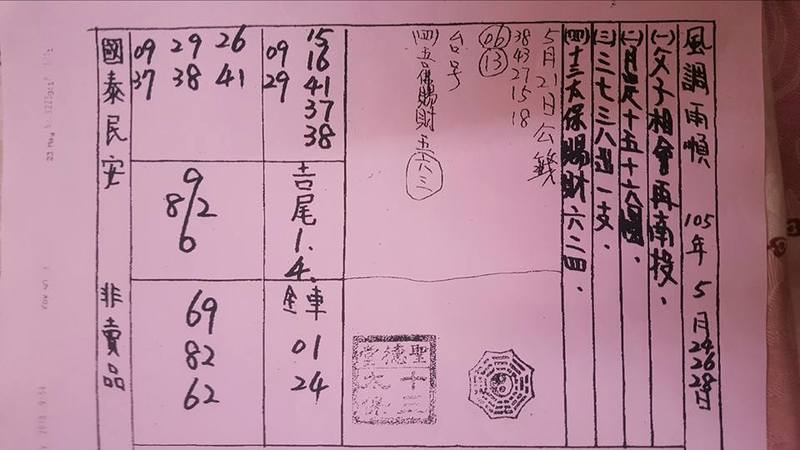 風調雨順 105年5月24 26 28日
(一)父子相會再南投.
(二)月是十五十六圓.
(三)三七三八選一支.
(四)十三太保賜財六二四.
5月21日公籤
38 43 27 15 18
06 13
台号
(四)五吉保賜財五六三
15
16
09 41
29 37
38
吉尾1.4.
全車
01
24
29 26
09 38 41
37
9
8/2
6
69
82
62
國泰民安 非賣品
聖德堂
十三太保